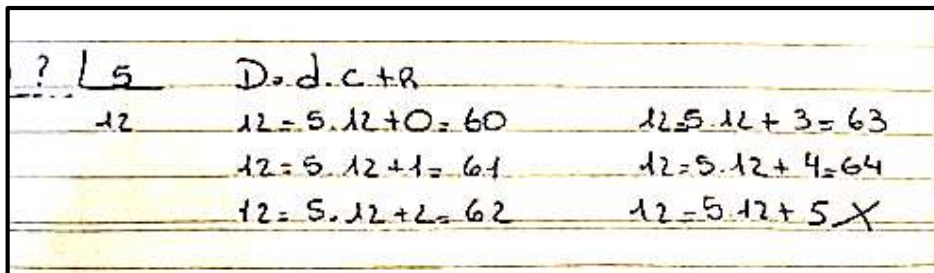 ? 5 D = d . c + R
12 12 = 5 . 12 + 0 = 60 12 = 5 . 12 + 3 = 63
12 = 5 . 12 + 1 = 61 12 = 5 . 12 + 4 = 64
12 = 5 . 12 + 2 = 62 12 = 5 . 12 + 5 X